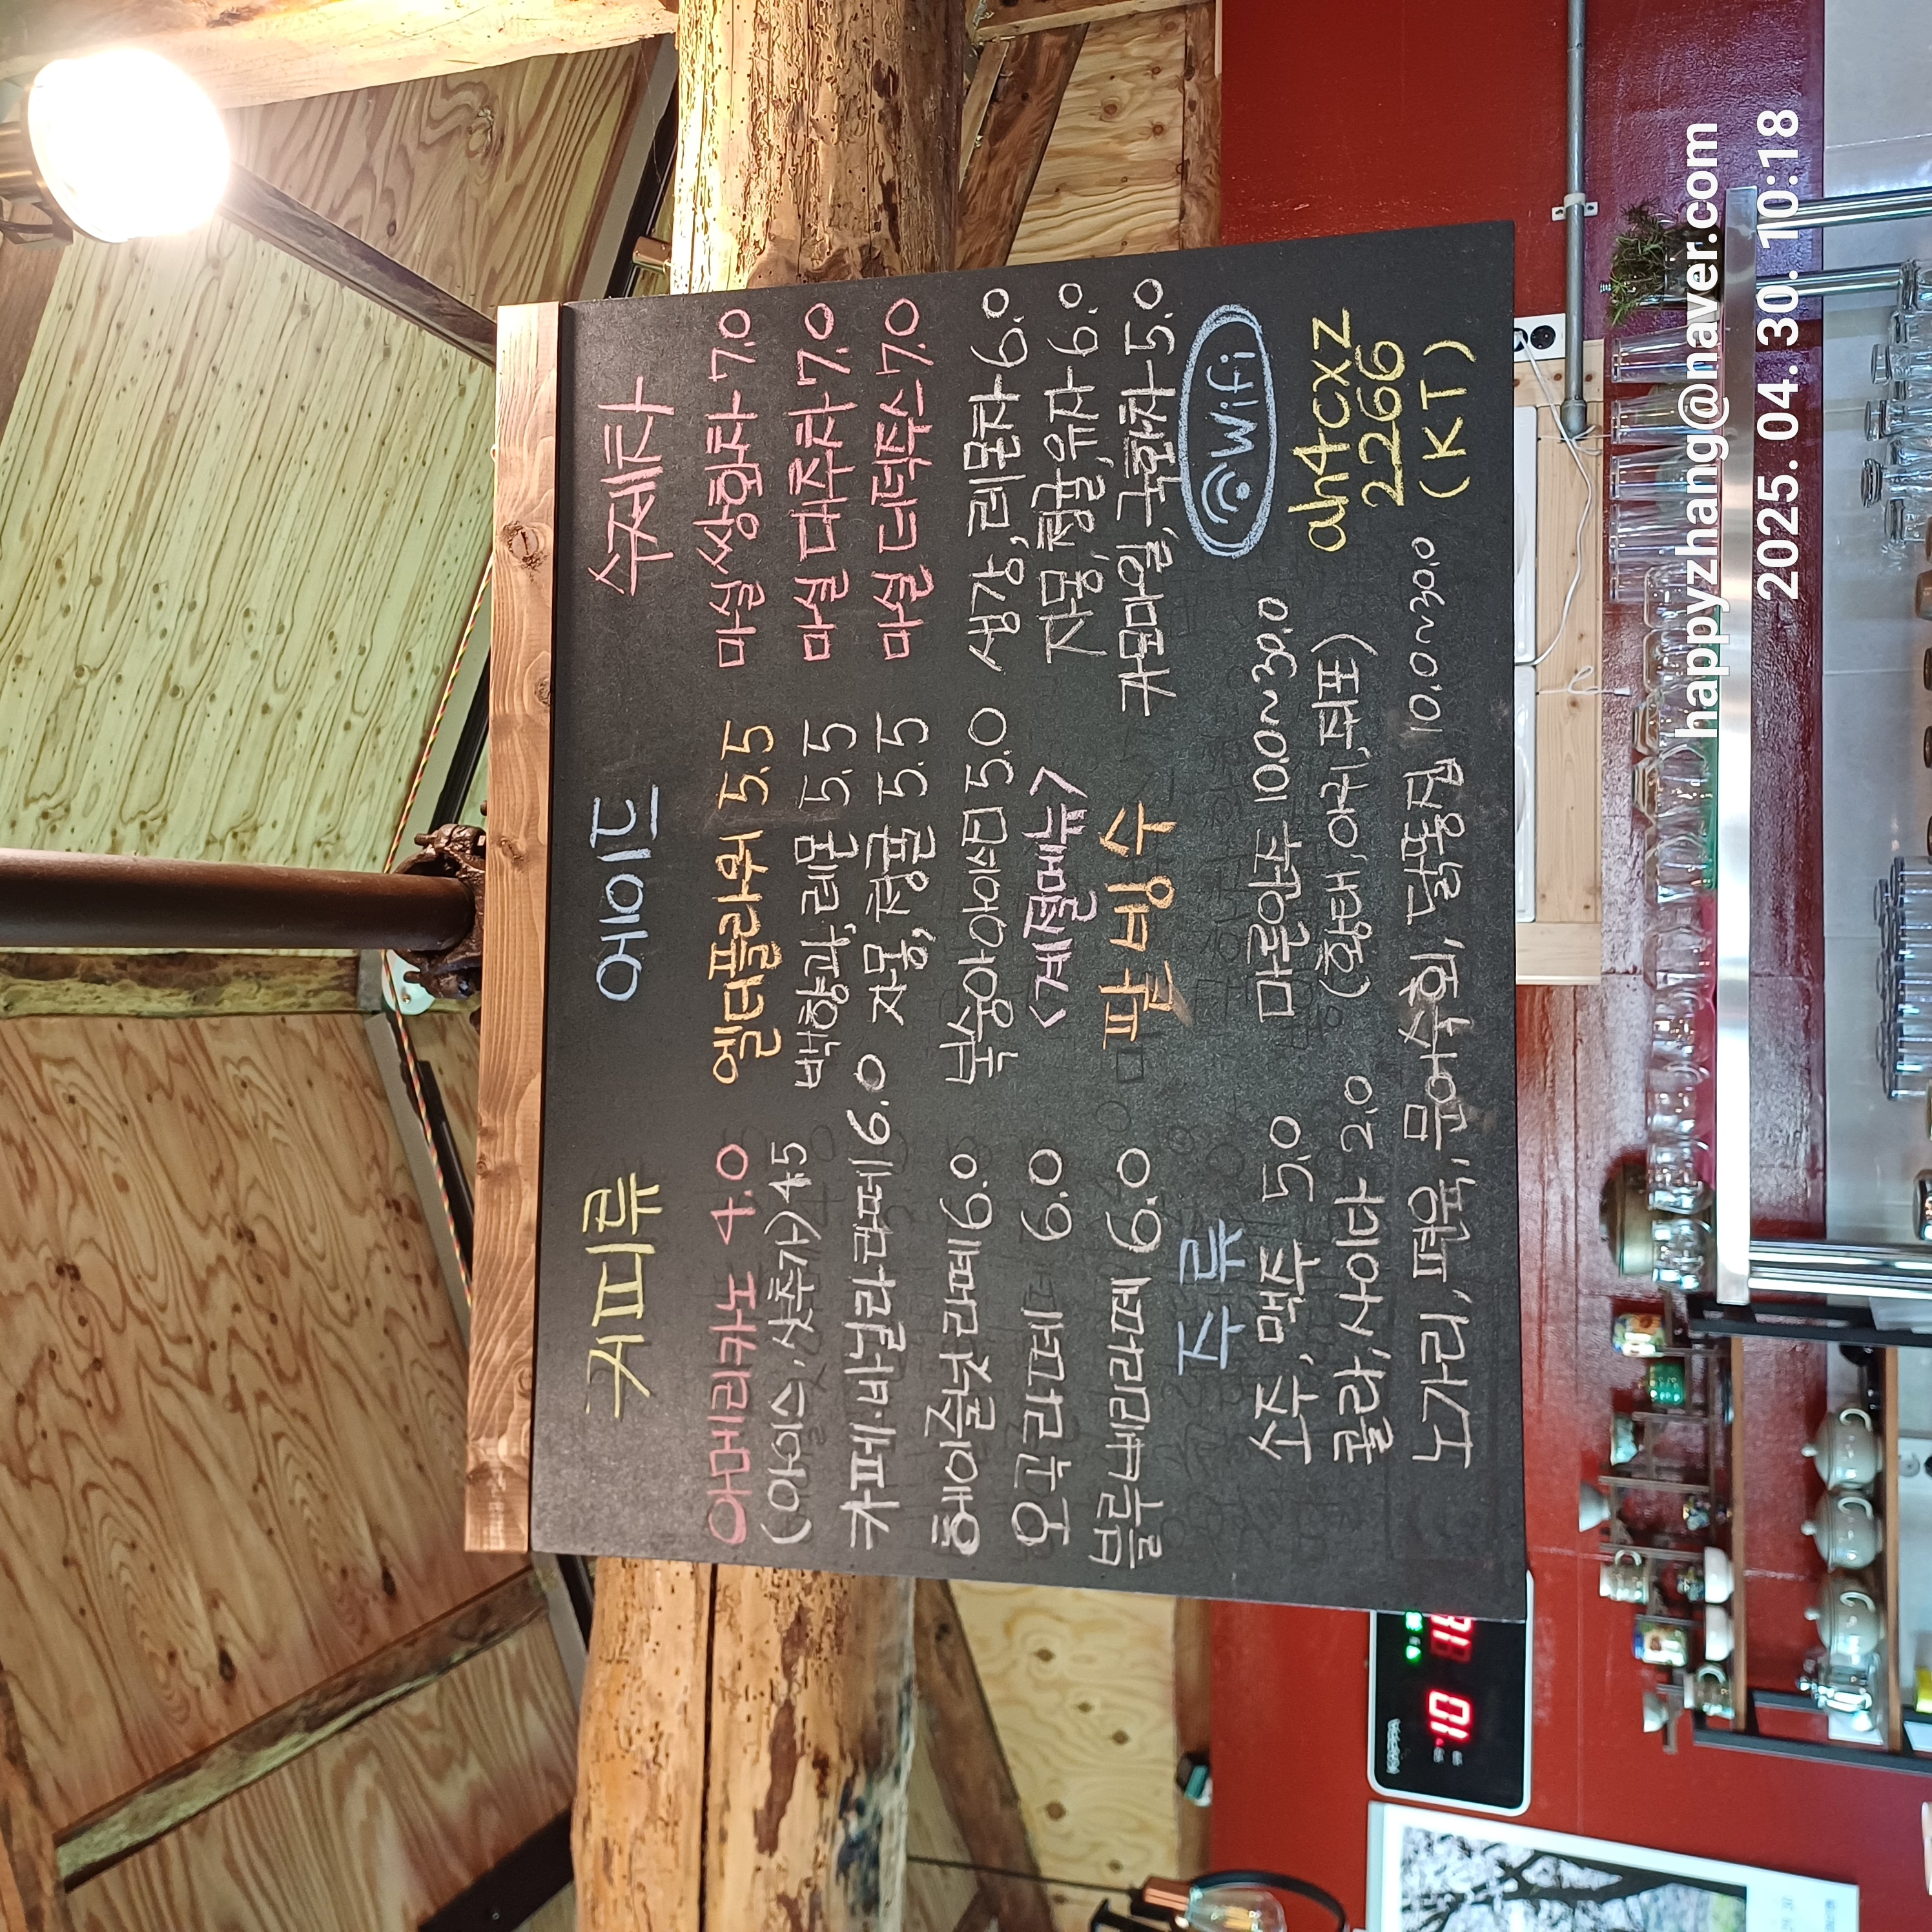 커피류
아메리카노 4.0
(아이스, 샷추가) 4.5
카페.바닐라라떼 6.0
헤이즐넛라떼 6.0
오곡라떼 6.0
블루베리라떼 6.0
에이드
엘더플라워 5.5
백향과, 레몬 5.5
자몽, 청귤 5.5
복숭아아이스티 5.0
<계절메뉴>
팥빙수
수제차
마설 쌍화차 7.0
마설 대추차 7.0
마설 더덕쥬스 7.0
생강, 레몬차 6.0
자몽, 청귤, 유자 6.0
카모마일, 국화차 5.0
Wifi
ah4cxz
2266
(KT)
주류
소주, 맥주 5.0
콜라, 사이다 2.0
마른안주 10.0~30.0
(황태, 아귀, 쥐포)
노가리, 편육, 문어숙회, 닭똥집 10.0~30.0
10
happyzhang@naver.com
2025. 04. 30. 10:18